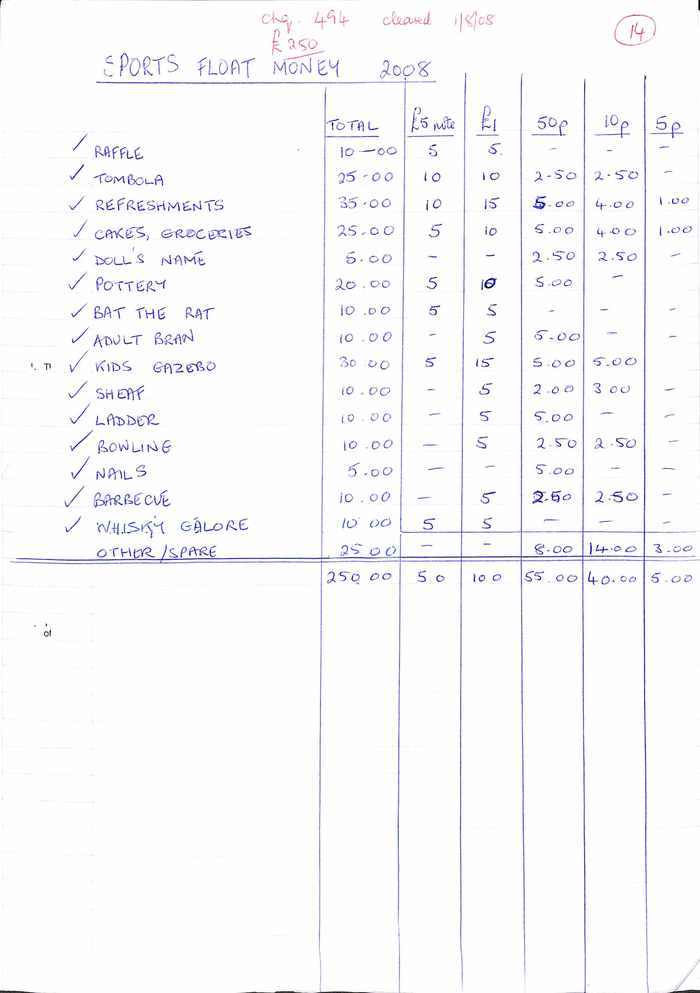 chq. 494 cleared 1/8/08
£250
14
SPORTS FLOAT MONEY 2008
TOTAL £5 note £1 50p 10p 5p
✓ RAFFLE 10-00 5 5. - - -
✓ TOMBOLA 25-00 10 10 2-50 2-50 -
✓ REFRESHMENTS 35-00 10 15 5.00 4.00 1.00
✓ CAKES, GROCERIES 25.00 5 10 5.00 4.00 1.00
✓ DOLL'S NAME 5.00 - - 2.50 2.50 -
✓ POTTERY 20.00 5 10 5.00 -
✓ BAT THE RAT 10.00 5 5 - - -
✓ ADULT BRAN 10.00 - 5 5-00 - -
✓ KIDS GAZEBO 30.00 5 15 5.00 5.00
✓ SHEAF 10.00 - 5 2.00 3 00 -
✓ LADDER 10.00 - 5 5.00 - -
✓ BOWLING 10.00 - 5 2.50 2.50 -
✓ NAILS 5.00 - - 5.00 - -
✓ BARBECUE 10.00 - 5 2.50 2.50 -
✓ WHISKY GALORE 10 00 5 5 - - -
OTHER/SPARE 25.00 - - 8.00 14.00 3.00
250.00 50 100 55.00 40.00 5.00
of